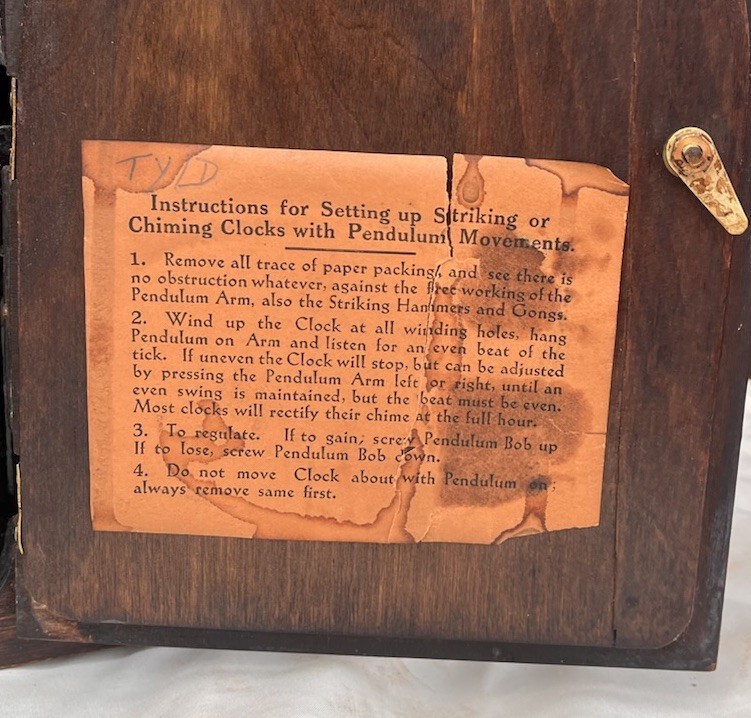 TYLD
Instructions for Setting up Striking or
Chiming Clocks with Pendulum Movements.
1. Remove all trace of paper packing, and see there is
no obstruction whatever, against the free working of the
Pendulum Arm, also the Striking Hammers and Gongs.
2. Wind up the Clock at all winding holes, hang
Pendulum on Arm and listen for an even beat of the
tick. If uneven the Clock will stop, but can be adjusted
by pressing the Pendulum Arm left or right, until an
even swing is maintained, but the beat must be even.
Most clocks will rectify their chime at the full hour.
3. To regulate. If to gain, screw Pendulum Bob up
If to lose, screw Pendulum Bob down.
4. Do not move Clock about with Pendulum on;
always remove same first.